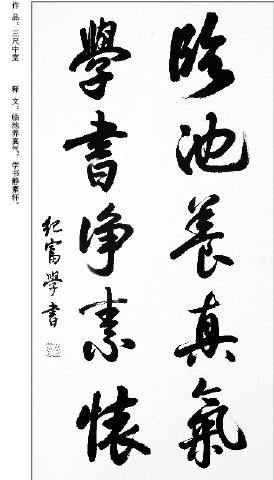 臨池養真氣
學書净素懷
紀富學書
作 品：三尺中堂 释 文：临池养真气，学书静素怀。